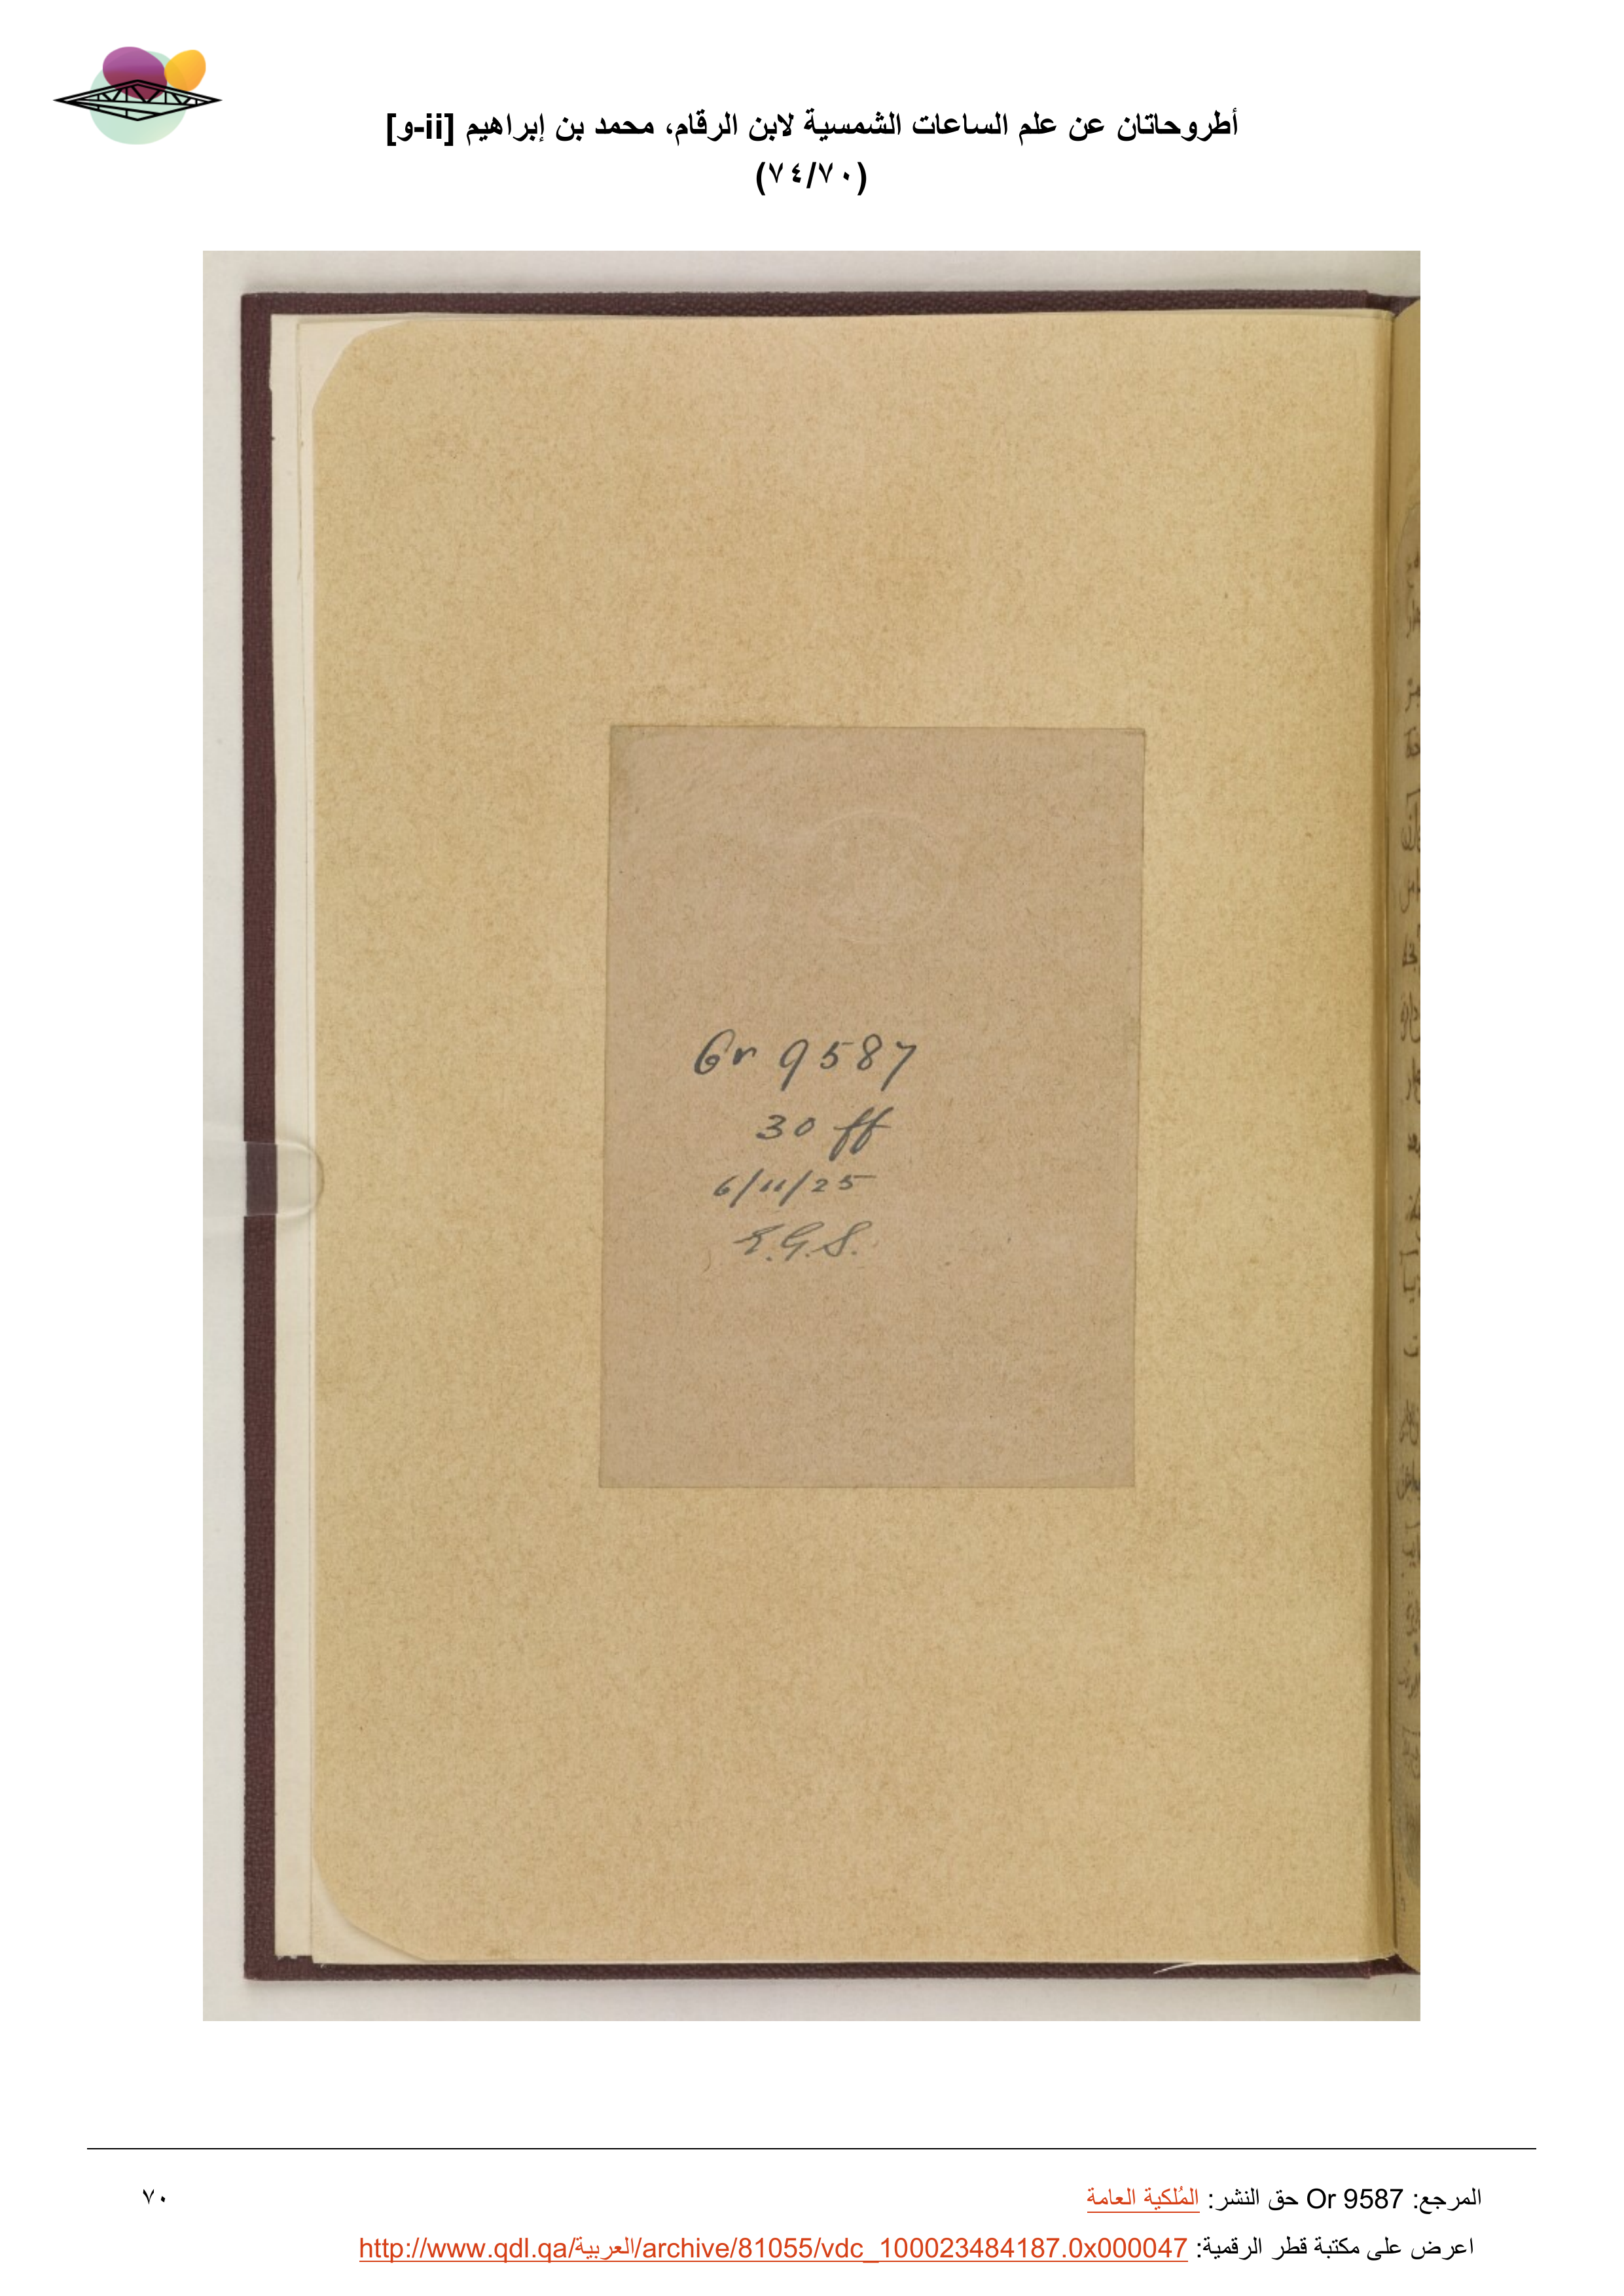 أطروحاتان عن علم الساعات الشمسية لابن الرقام، محمد بن إبراهيم [ii-و]
(٧٤/٧٠)
Or 9587
30 ff
6/11/25
E.G.S.
المرجع: Or 9587 حق النشر: المُلكية العامة
٧٠
اعرض على مكتبة قطر الرقمية: http://www.qdl.qa/العربية/archive/81055/vdc_100023484187.0x000047